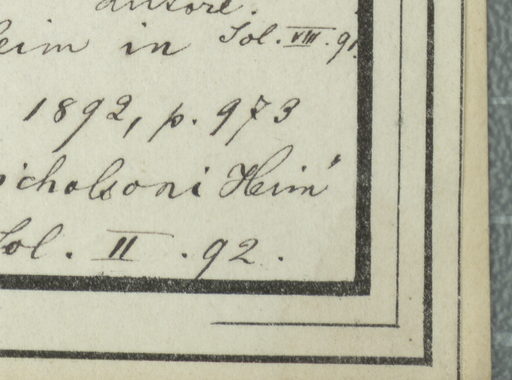 autore.
eim in Sol. VIII. 91.
1892, p. 973
icholsoni Heim"
Sol. II. 92.